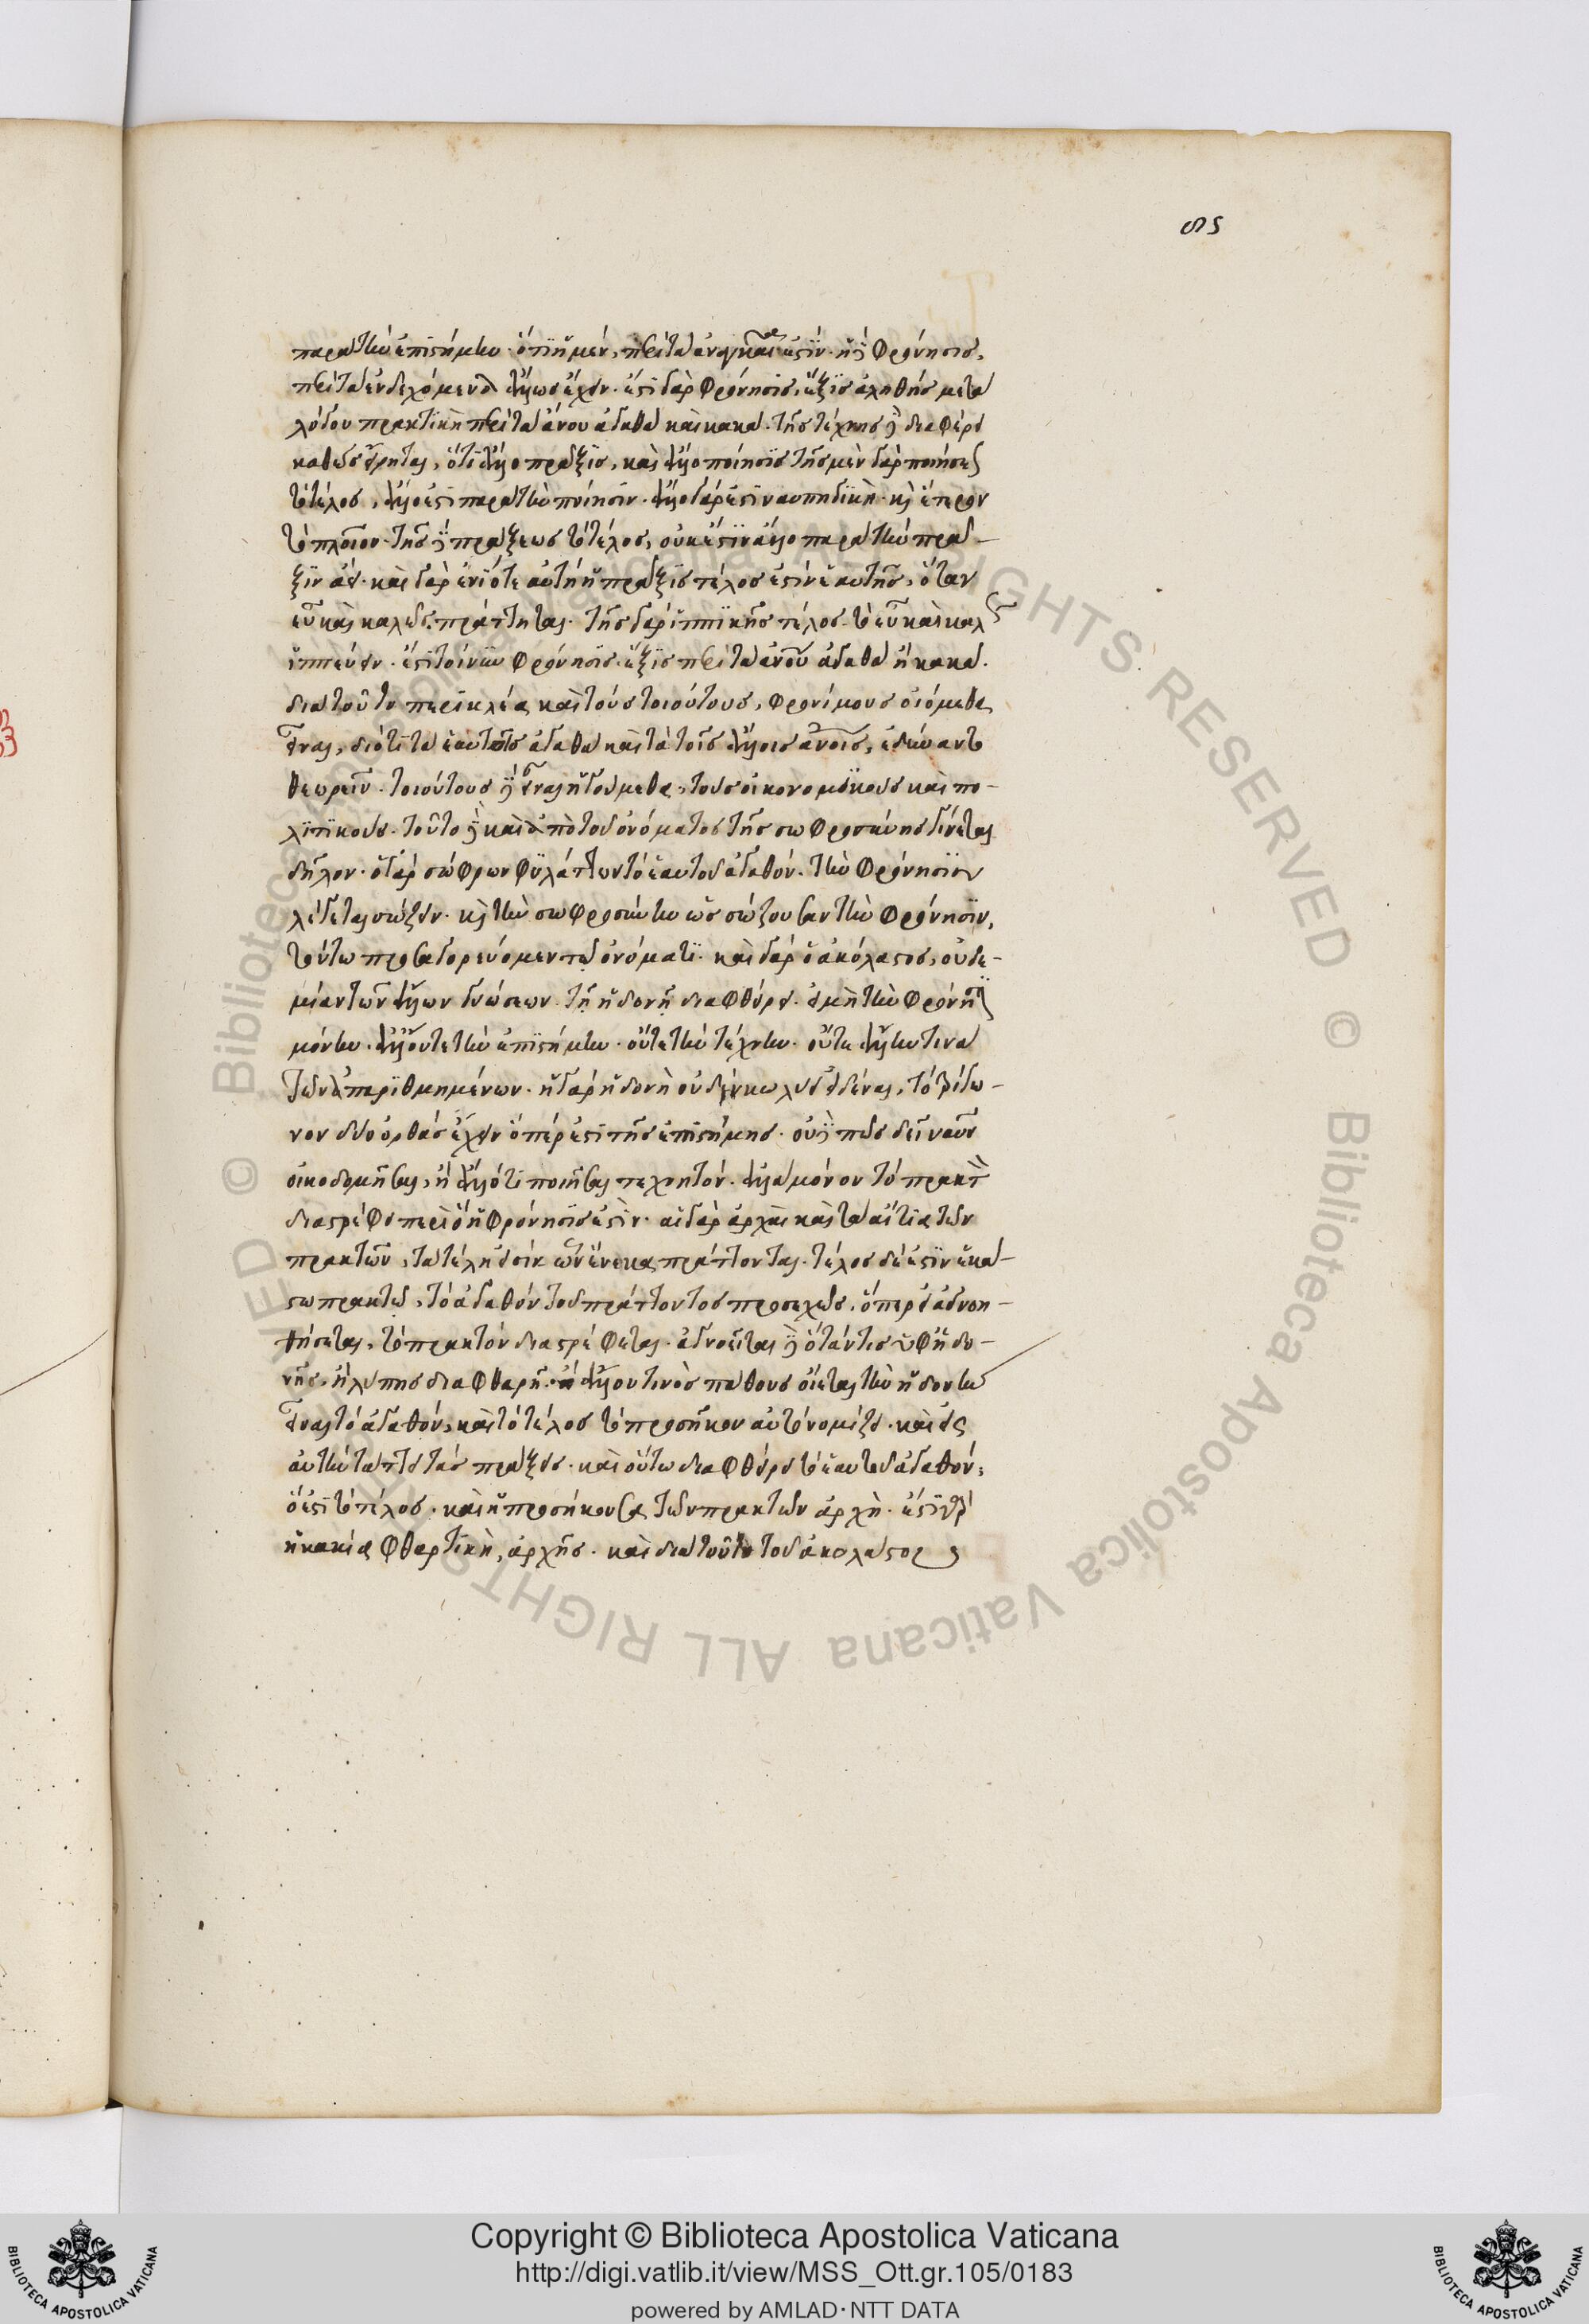 ϟϛ
παρα τὴν ἐπιστήμην· ὅτι ἡ μέν, περὶ τὰ ἀναγκαῖα ἐστίν· ἡ δὲ φρόνησις,
περὶ τὰ ἐνδεχόμενα ἄλλως ἔχειν· ἔστι γὰρ φρόνησις, ἕξις ἀληθής μετὰ
λόγου πρακτικὴ περὶ τὰ ἀνου ἀγαθὰ καὶ κακά· τῆς τέχνης δὲ διαφέρει
καθὼς εἴρηται, ὅτι ἄλλο πρᾶξις, καὶ ἄλλο ποίησις τῆς μὲν γὰρ ποιήσεως
τὸ τέλος, ἄλλο ἐστὶ παρὰ τὴν ποίησιν· ἄλλο γάρ ἐστι ναυπηγικὴ· καὶ ἕτερον
τὸ πλοῖον· τῆς δὲ πράξεως τὸ τέλος, οὐκ ἔστιν ἄλλο παρὰ τὴν πρᾶ-
ξιν ἀεί· καὶ γὰρ ἐνίοτε αὐτὴ ἡ πρᾶξις τέλος ἐστὶν ἑαυτῆς, ὅταν
εὖ καὶ καλῶς πράττηται· τῆς γὰρ ἱππικῆς τέλος τὸ εὖ καὶ καλῶς
ἱππεύειν· ἔστι τοίνυν φρόνησις ἕξις περὶ τὰ ἀνου ἀγαθὰ ἢ κακά·
διὰ τοῦτο περικλέα καὶ τοὺς τοιούτους, φρονίμους οἰόμεθα
εἶναι, διότι τὰ ἑαυτοῖς ἀγαθὰ καὶ τὰ τοῖς ἄλλοις ἀνοις, ἐδύναντο
θεωρεῖν· τοιούτους δὲ εἶναι ἡγούμεθα, τοὺς οἰκονομικοὺς καὶ πο-
λιτικούς· τοῦτο δὲ καὶ ἀπὸ τοῦ ὀνόματος τῆς σωφροσύνης γίνεται
δῆλον· ὁ γὰρ σώφρων φυλάττων τὸ ἑαυτοῦ ἀγαθόν· τὴν φρόνησιν
λέγεται σώζειν· καὶ τὴν σωφροσύνην ὡς σώζουσαν τὴν φρόνησιν,
τούτω προσαγορεύομεν τῷ ὀνόματι· καὶ γὰρ ὁ ἀκόλαστος, οὐδε-
μίαν τῶν ἄλλων γνώσεων τῇ ἡδονῇ διαφθείρει· εἰ μὴ τὴν φρόνησιν
μόνην· ἀλλ' οὔτε τὴν ἐπιστήμην· οὔτε τὴν τέχνην· οὔτε ἄλλην τινὰ
τῶν ἀπαριθμημένων· ἡ γὰρ ἡδονὴ οὐδὲν κωλύει εἰδέναι, τὸ τρίγω-
νον δύο ὀρθὰς ἔχειν ὅπέρ ἐστι τῆς ἐπιστήμης· οὐδὲ πῶς δεῖ ναῦς
οἰκοδομῆσαι, ἢ ἄλλό τι ποιῆσαι τεχνητόν· ἀλλὰ μόνον τὸ πρακτὸν
διαστρέφει περὶ ὃ ἡ φρόνησις ἐστίν· αἱ γὰρ ἀρχαὶ καὶ τὰ αἴτια τῶν
πρακτῶν, τὰ τέλη εἰσὶν ὧν ἕνεκα πράττονται· τέλος δέ ἐστιν ἑκά-
στω πρακτῷ, τὸ ἀγαθὸν τοῦ πράττοντος προσεχῶς, ὅπερ εἰ ἀγνοη-
θήσεται, τὸ πρακτὸν διαστρέφεται· ἀγνοεῖται δὲ ὅτάν τις ὑφ' ἡδο-
νῆς, ἢ λύπης διαφθαρῇ· ἢ ἄλλου τινὸς πάθους οἴεται τὴν ἡδονὴν
εἶναι τὸ ἀγαθόν, καὶ τὸ τέλος τὸ προσῆκον αὐτὸ νομίζει· καὶ εἰς
αὐτὴν τάττει τὰς πράξεις· καὶ οὕτω διαφθείρει τὸ ἑαυτοῦ ἀγαθόν;
ὅ ἐστι τὸ τέλος· καὶ ἡ προσήκουσα τῶν πρακτῶν ἀρχὴ· ἔστι γὰρ
ἡ κακία φθαρτικὴ, ἀρχῆς· καὶ διὰ τοῦτο τοῦ ἀκολάστου
Copyright © Biblioteca Apostolica Vaticana
http://digi.vatlib.it/view/MSS_Ott.gr.105/0183
powered by AMLAD·NTT DATA